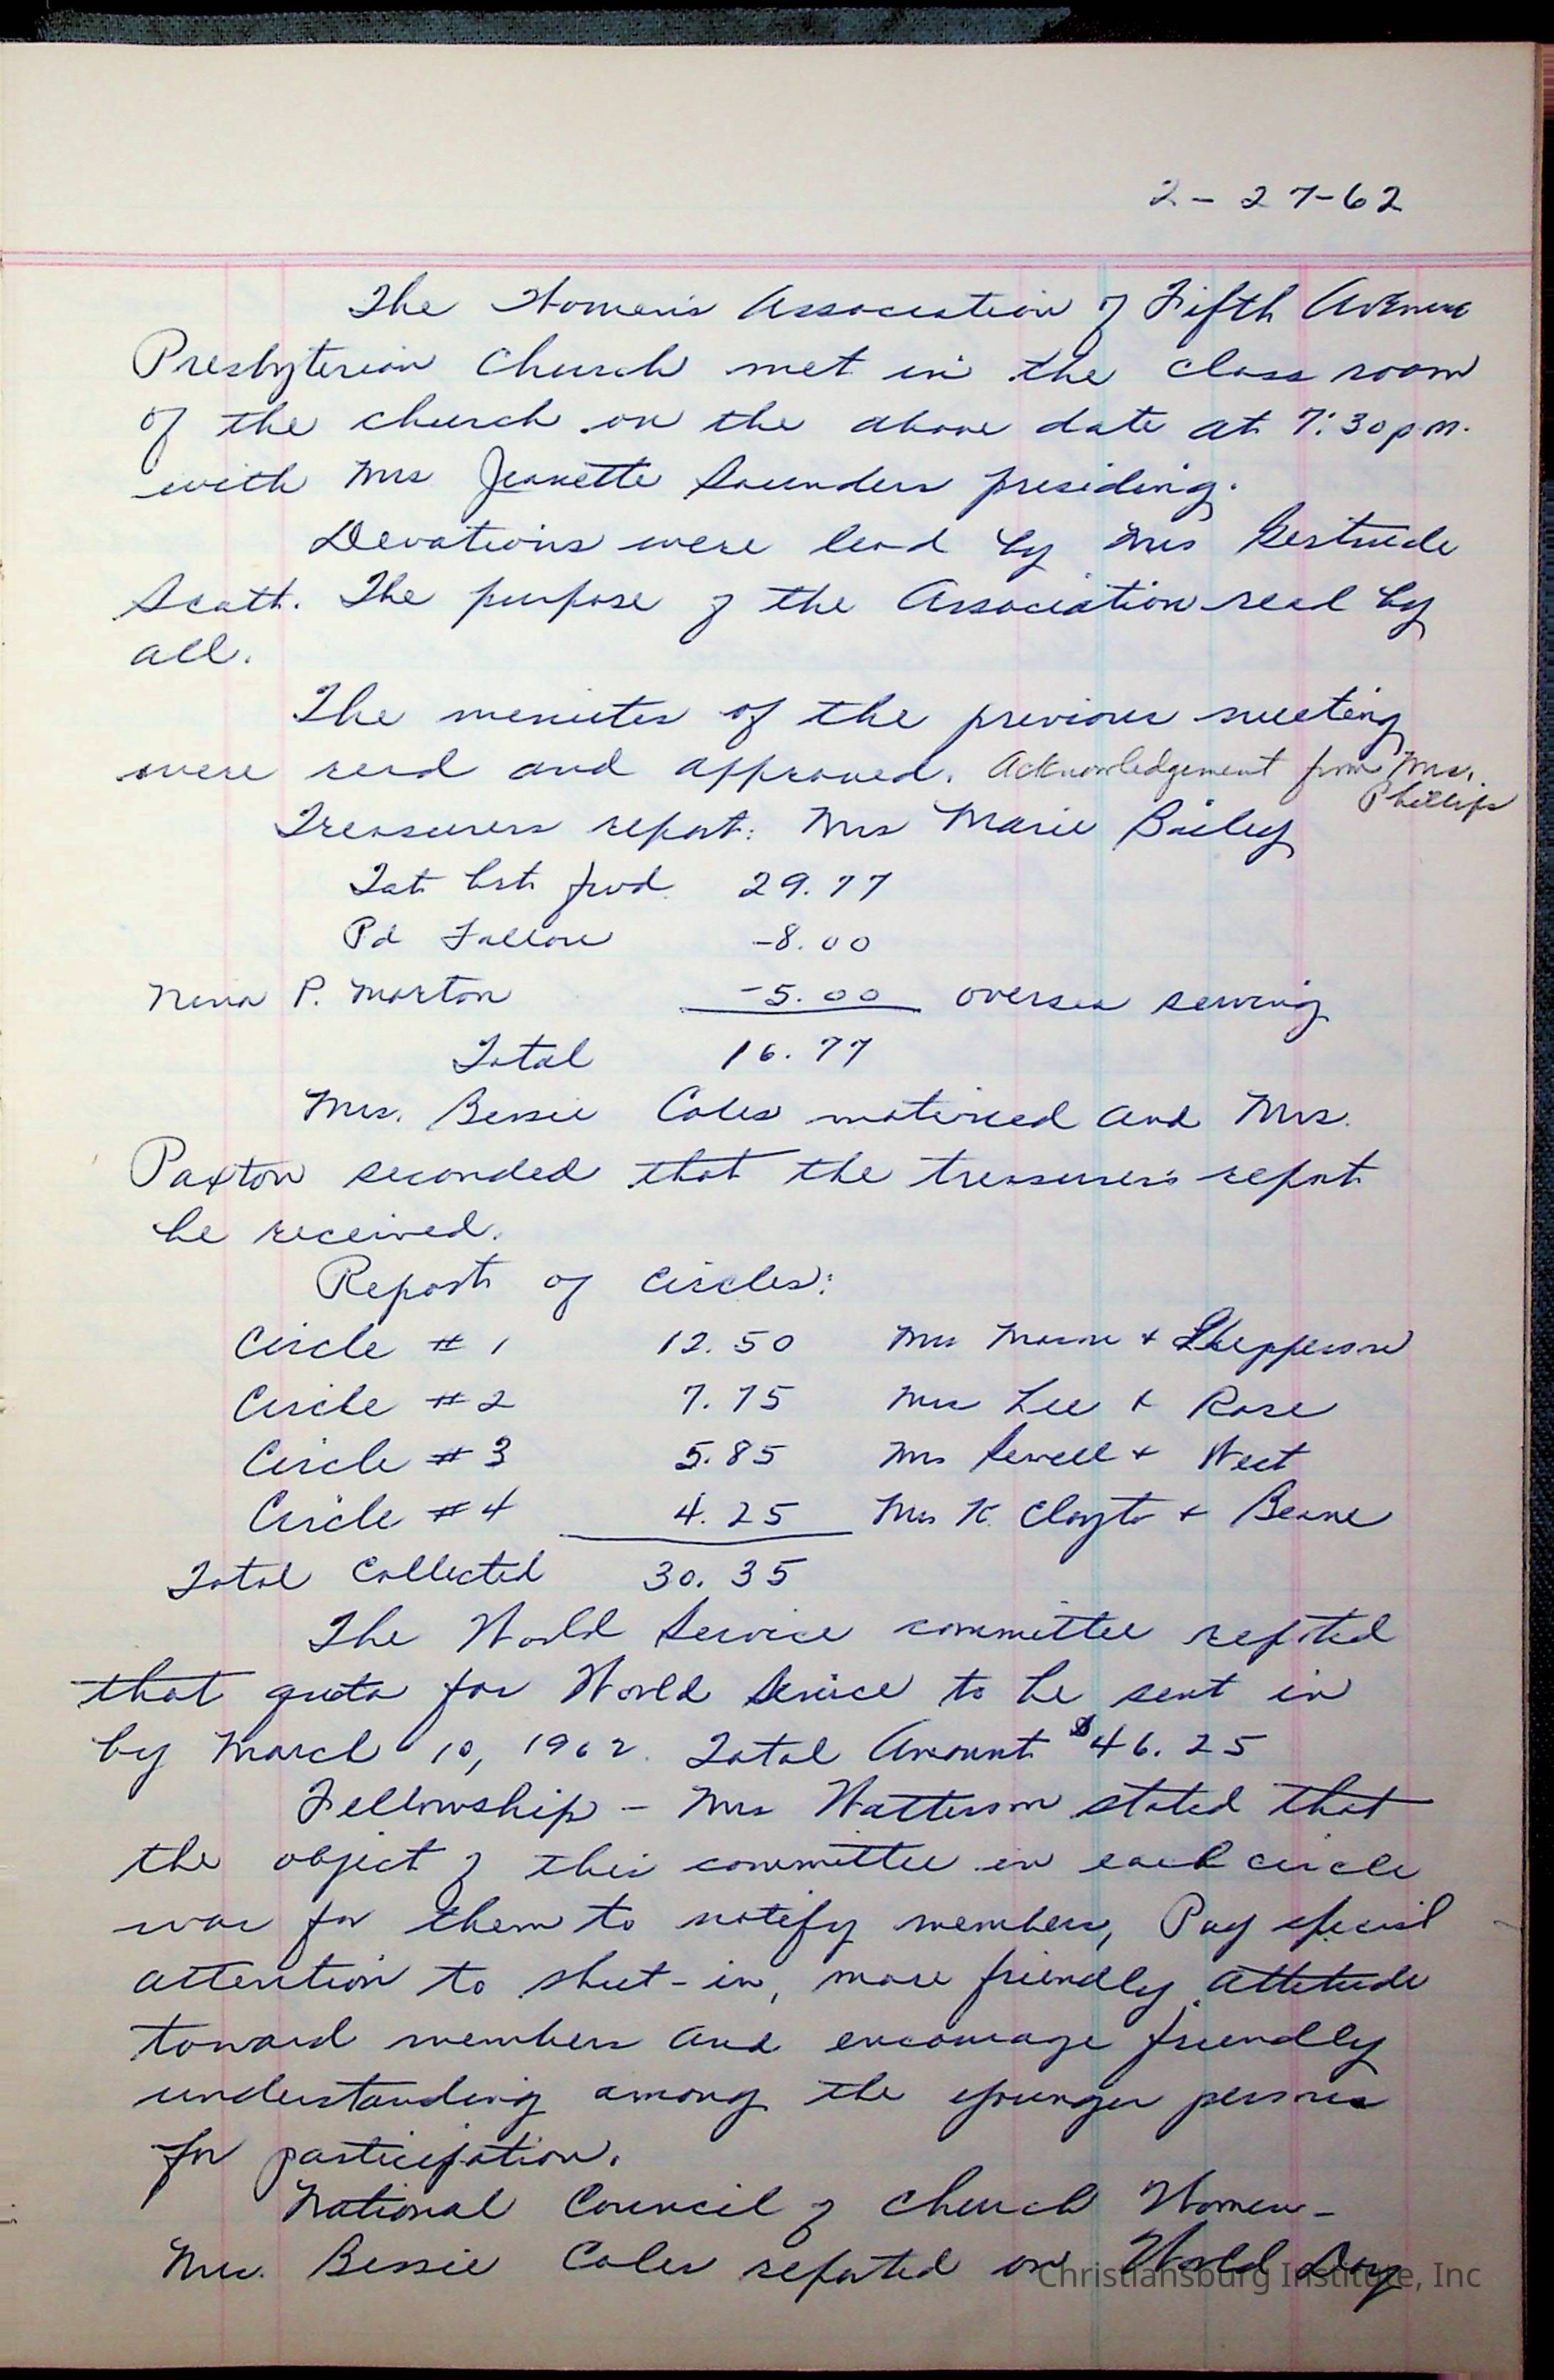 2-27-62
The Women's Association of Fifth Avenue
Presbyterian Church met in the class room
of the church on the above date at 7:30 p.m.
with Mrs Jeanette Saunders presiding.
Devotions were lead by Mrs Gertrude
Scott. The purpose of the Association read by
all.
The minutes of the previous meeting
were read and approved. Acknowledgement from Mrs.
Phillips
Treasurers report: Mrs Marie Bailey
fwd. 29.77
Pd -8.00
Nena P. Morton -5.00 oversea sewing
Total 16.77
Mrs. Bessie Coles motioned and Mrs.
Paxton seconded that the treasurer's report
be received.
Report of Circles:
Circle #1 12.50 Mrs + Shepperson
Circle #2 7.75 Mrs Lee + Rose
Circle #3 5.85 Mrs Sewell + West
Circle #4 4.25 Mrs K. Clayto + Beane
Total Collected 30.35
The World Service committee repoted
that quota for World Service to be sent in
by March 10, 1962. Total Amount $46.25
Fellowship - Mrs Watterson stated that
the object of this committee in each circle
was for them to notify members, Pay special
attention to shut-in, more friendly attitude
toward members and encourage friendly
understanding among the younger persons
for participation.
National Council of Church Women -
Mrs. Bessie Coles repoted on World Day
Christiansburg Institute, Inc